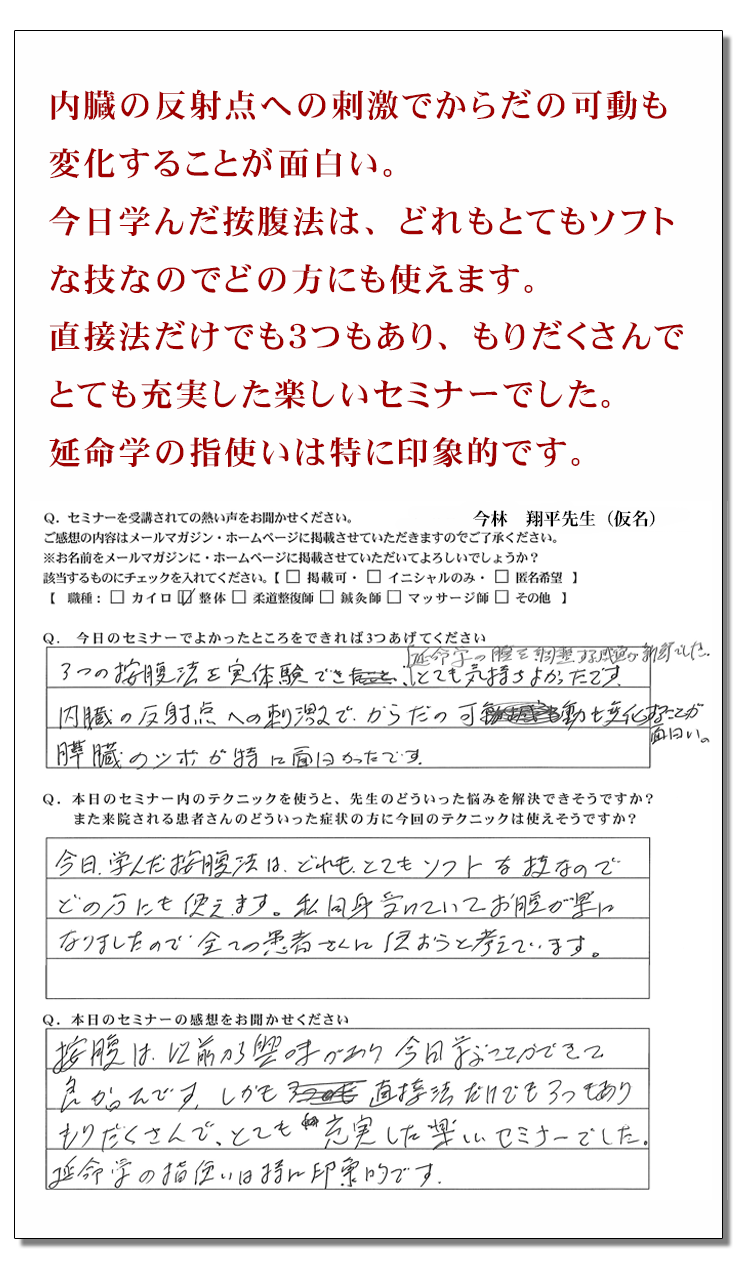 内臓の反射点への刺激でからだの可動も
変化することが面白い。
今日学んだ按腹法は、どれもとてもソフト
な技なのでどの方にも使えます。
直接法だけでも3つもあり、もりだくさんで
とても充実した楽しいセミナーでした。
延命学の指使いは特に印象的です。
Q．セミナーを受講されての熱い声をお聞かせください。 今林　翔平先生（仮名）
ご感想の内容はメールマガジン・ホームページに掲載させていただきますのでご了承ください。
※お名前をメールマガジンに・ホームページに掲載させていただいてよろしいでしょうか？
該当するものにチェックを入れてください。【 □ 掲載可・ □ イニシャルのみ・ □ 匿名希望 】
【 職種： □ カイロ ☑ 整体 □ 柔道整復師 □ 鍼灸師 □ マッサージ師 □ その他 】
Q．今日のセミナーでよかったところをできれば3つあげてください
延命学の腹を調整する感覚が新鮮でした。
3つの按腹法を実体験でき、とても気持ちよかったです
内臓の反射点への刺激で、からだの可動も変化することが
面白い。
膵臓のツボが特に面白かったです
Q．本日のセミナー内のテクニックを使うと、先生のどういった悩みを解決できそうですか？
また来院される患者さんのどういった症状の方に今回のテクニックは使えそうですか？
今日、学んだ按腹法は、どれも、とてもソフトな技なので
どの方にも使えます。私自身受けていてお腹が楽に
なりましたので全ての患者さんに使おうと考えています。
Q．本日のセミナーの感想をお聞かせください
按腹は、以前から興味があり今日学ぶことができて
良かったです。しかも直接法だけでも3つもあり
もりだくさんで、とても充実した楽しいセミナーでした。
延命学の指使いは特に印象的です。